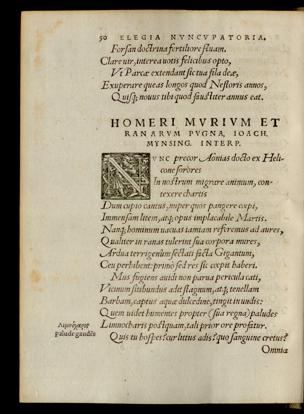 50 ELEGIA NVNCVPATORIA,
Forsan doctrina fertiliore fluam.
Clare uir, interea uotis felicibus opto,
Vt Parcæ extendant sic tua fila deæ,
Exuperare queas longos quod Nestoris annos,
Quisq; nouus tibi quod fausliter annus eat.
HOMERI MVRIVM ET
RANARVM PVGNA, IOACH.
MYNSING. INTERP.
NVNC precor Aönias docto ex Heli
cone sorores
In nostrum migrare animum, con-
texere chartis
Dum cupio cantus, nuper quos pangere cœpi,
Immensam litem, atq; opus implacabile Martis.
Nanq; hominum uacuas tamiam referemus ad aures,
Qualiter in ranas tulerint sua corpora mures,
Ardua terrigenûm sectati facta Gigantum,
Ceu perhibent: primò sed res sic cœpit haberi.
Mus fugiens auidi non parua pericula cati,
Vicinum sitibundus adit stagnum, atq; tenellam
Barbam, captus aquæ dulcedine, tingit in undis:
Quem uidet humentes propter (sua regna) paludes
Limnocharis postquam, tali prior ore profatur.
Quis tu hospes? cur littus adis? quo sanguine cretus?
Λιμνόχαρις
palude gaudẽs
Omnia